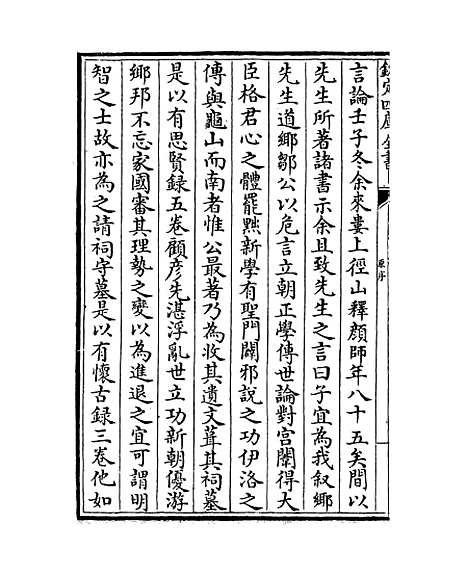 欽定四庫全書
原序
言論壬子冬余來婁上徑山釋顔師年八十五矣間以
先生所著諸書示余且致先生之言曰子宜為我叙鄉
先生道鄉鄒公以危言立朝正學傳世論對宫闈得大
臣格君心之體罷黜新學有聖門闢邪說之功伊洛之
傳與龜山而南者惟公最著乃為收其遺文葺其祠墓
是以有思賢録五卷顧彦先湛浮亂世立功新朝優游
鄉邦不忘家國審其理勢之變以為進退之宜可謂明
智之士故亦為之請祠守墓是以有懷古録三卷他如